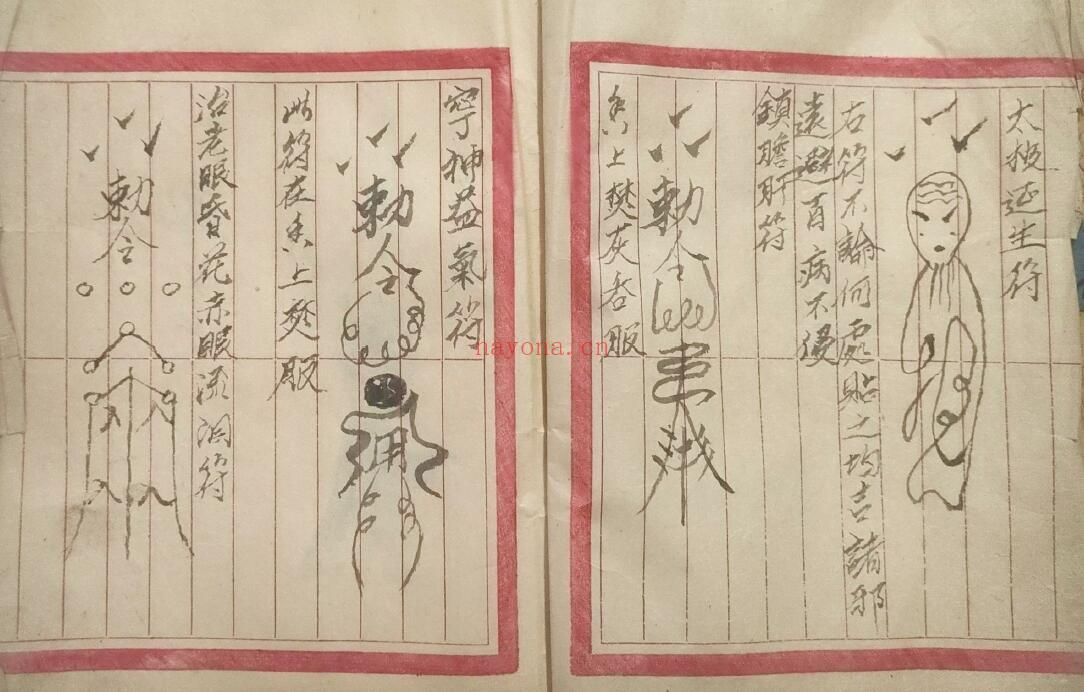 太极还生符
右符不論何處貼之均吉諸邪
遠避百病不侵
鎮膽肝符
勅令
香上焚灰吞服
寧神益氣符
勅令
此符在香上焚服
治老眼昏花赤眼流淚符
勅令
nayona.cn